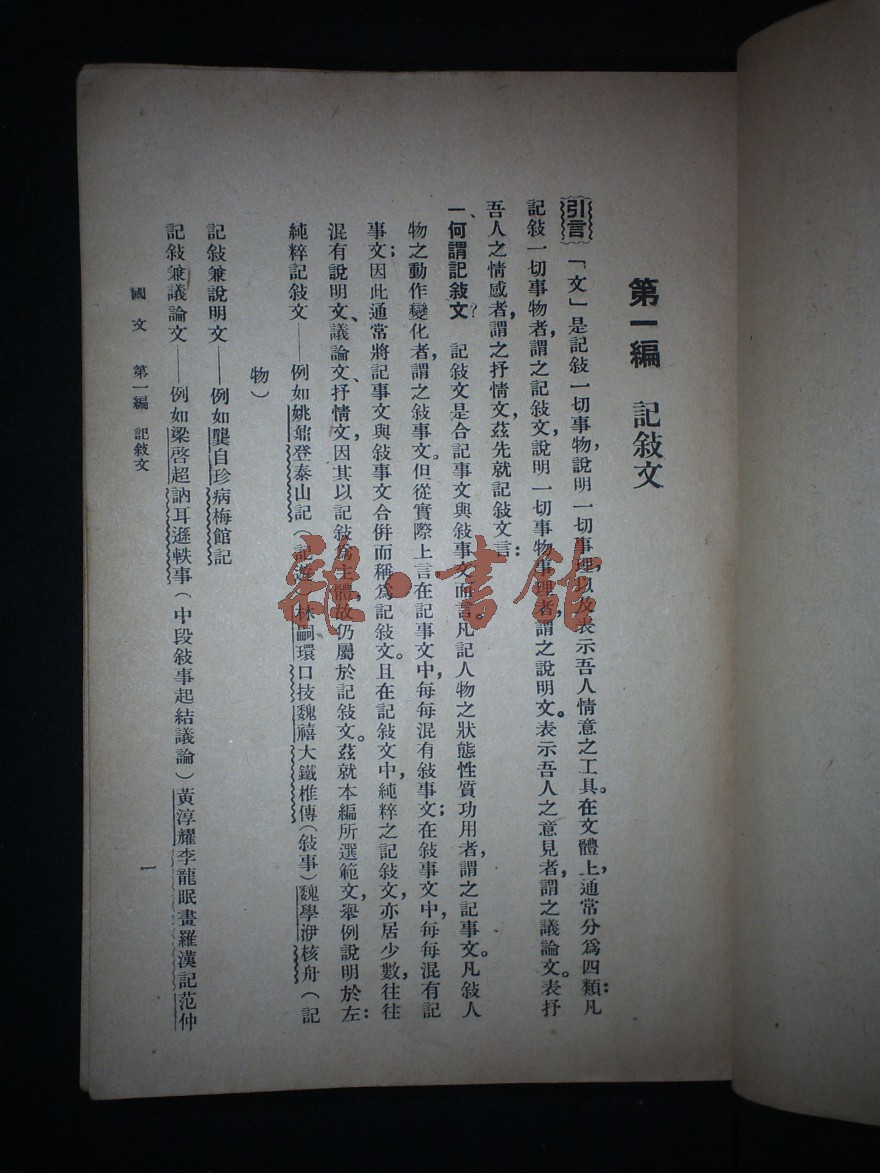 第一編　記敍文
引言　「文」是記敍一切事物，說明一切事理，以及表示吾人情意之工具。在文體上，通常分爲四類：凡
記敍一切事物者，謂之記敍文，說明一切事物事理者，謂之說明文。表示吾人之意見者，謂之議論文。表抒
吾人之情感者，謂之抒情文，茲先就記敍文言：
一、何謂記敍文？　記敍文是合記事文與敍事文而言。凡記人物之狀態性質功用者，謂之記事文。凡敍人
物之動作變化者，謂之敍事文。但從實際上言在記事文中，每每混有敍事文；在敍事文中，每每混有記
事文；因此通常將記事文與敍事文合併而稱爲記敍文。且在記敍文中，純粹之記敍文，亦居少數，往往
混有說明文、議論文、抒情文，因其以記敍爲主體，故仍屬於記敍文。茲就本編所選範文，舉例說明於左：
純粹記敍文——例如姚鼐登泰山記（記遊）林嗣環口技魏禧大鐵椎傳（敍事）魏學洢核舟（記
物）
記敍兼說明文——例如龔自珍病梅館記
記敍兼議論文——例如梁啓超訥耳遜軼事（中段敍事起結議論）黃淳耀李龍眠畫羅漢記范仲
國文　第一編　記敍文
一
龍·書館